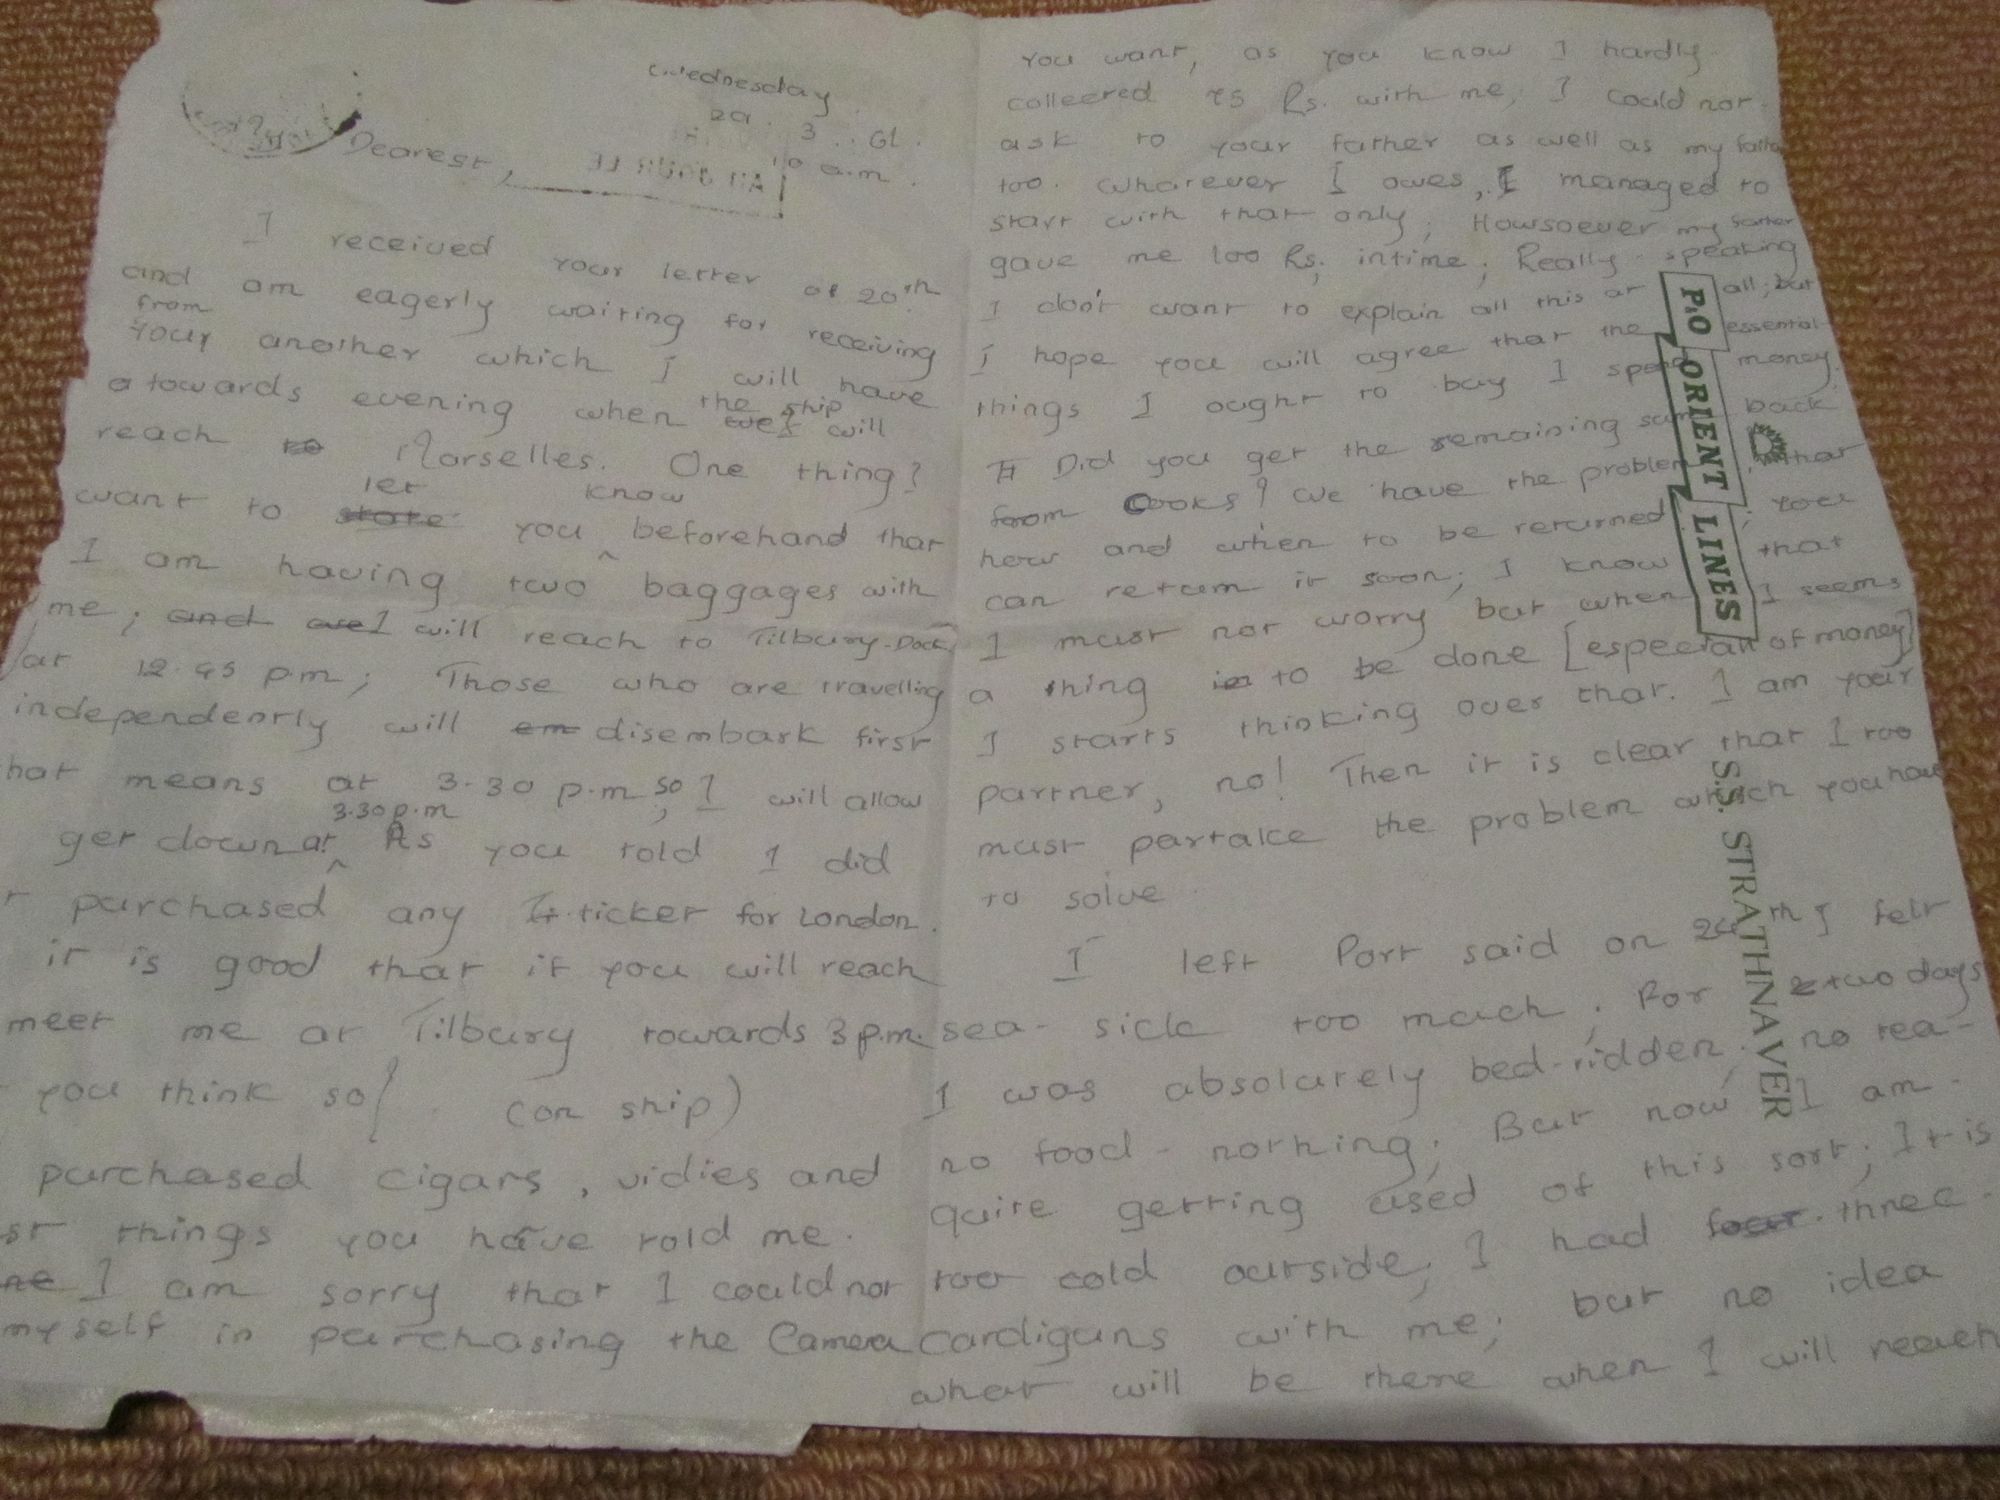 Wednesday
29.3.61.
10 a.m.
Dearest,
I received your letter of 20th
and am eagerly waiting for receiving
from
your another which I will have
towards evening when the ship will
reach to Marselles. One thing?
want to state let you know beforehand that
I am having two baggages with
me; and we I will reach to Tilbury-Dock
at 12.45 p.m; Those who are travelling
independently will em disembark first
hat means at 3.30 p.m; so I will allow
get down at 3.30 p.m As you told I did
t purchased any ticket for London.
it is good that if you will reach
meet me at Tilbury towards 3 p.m.
you think so! (on ship)
purchased cigars, vidies and
st things you have told me.
ne I am sorry that I could not
myself in purchasing the Camera
you want, as you know I hardly
colleered 75 Rs. with me; I could not
ask to your father as well as my
too. Whatever I owes, I managed to
start with that only; Howsoever my father
gave me 100 Rs; intime; Really speaking
I don't want to explain all this at all; but
I hope you will agree that the essential
things I ought to buy I money.
Did you get the remaining back
from Cooks? We have the problem, that
how and when to be returned; you
can return it soon; I know that
I must not worry but when I seems
a thing in to be done [especially of money]
I starts thinking over that. I am your
partner, no! Then it is clear that I too
must partake the problem which you have
to solve.
I left Port said on 24th I felt
sea-sick too much; For 2 two days
I was absolutely bed-ridden; no tea-
no food - nothing; But now I am
quite getting used of this sort; It is
too cold outside; I had four three
cardiguns with me; but no idea
what will be there when I will reach
P&O ORIENT LINES
S.S. STRATHNAVER